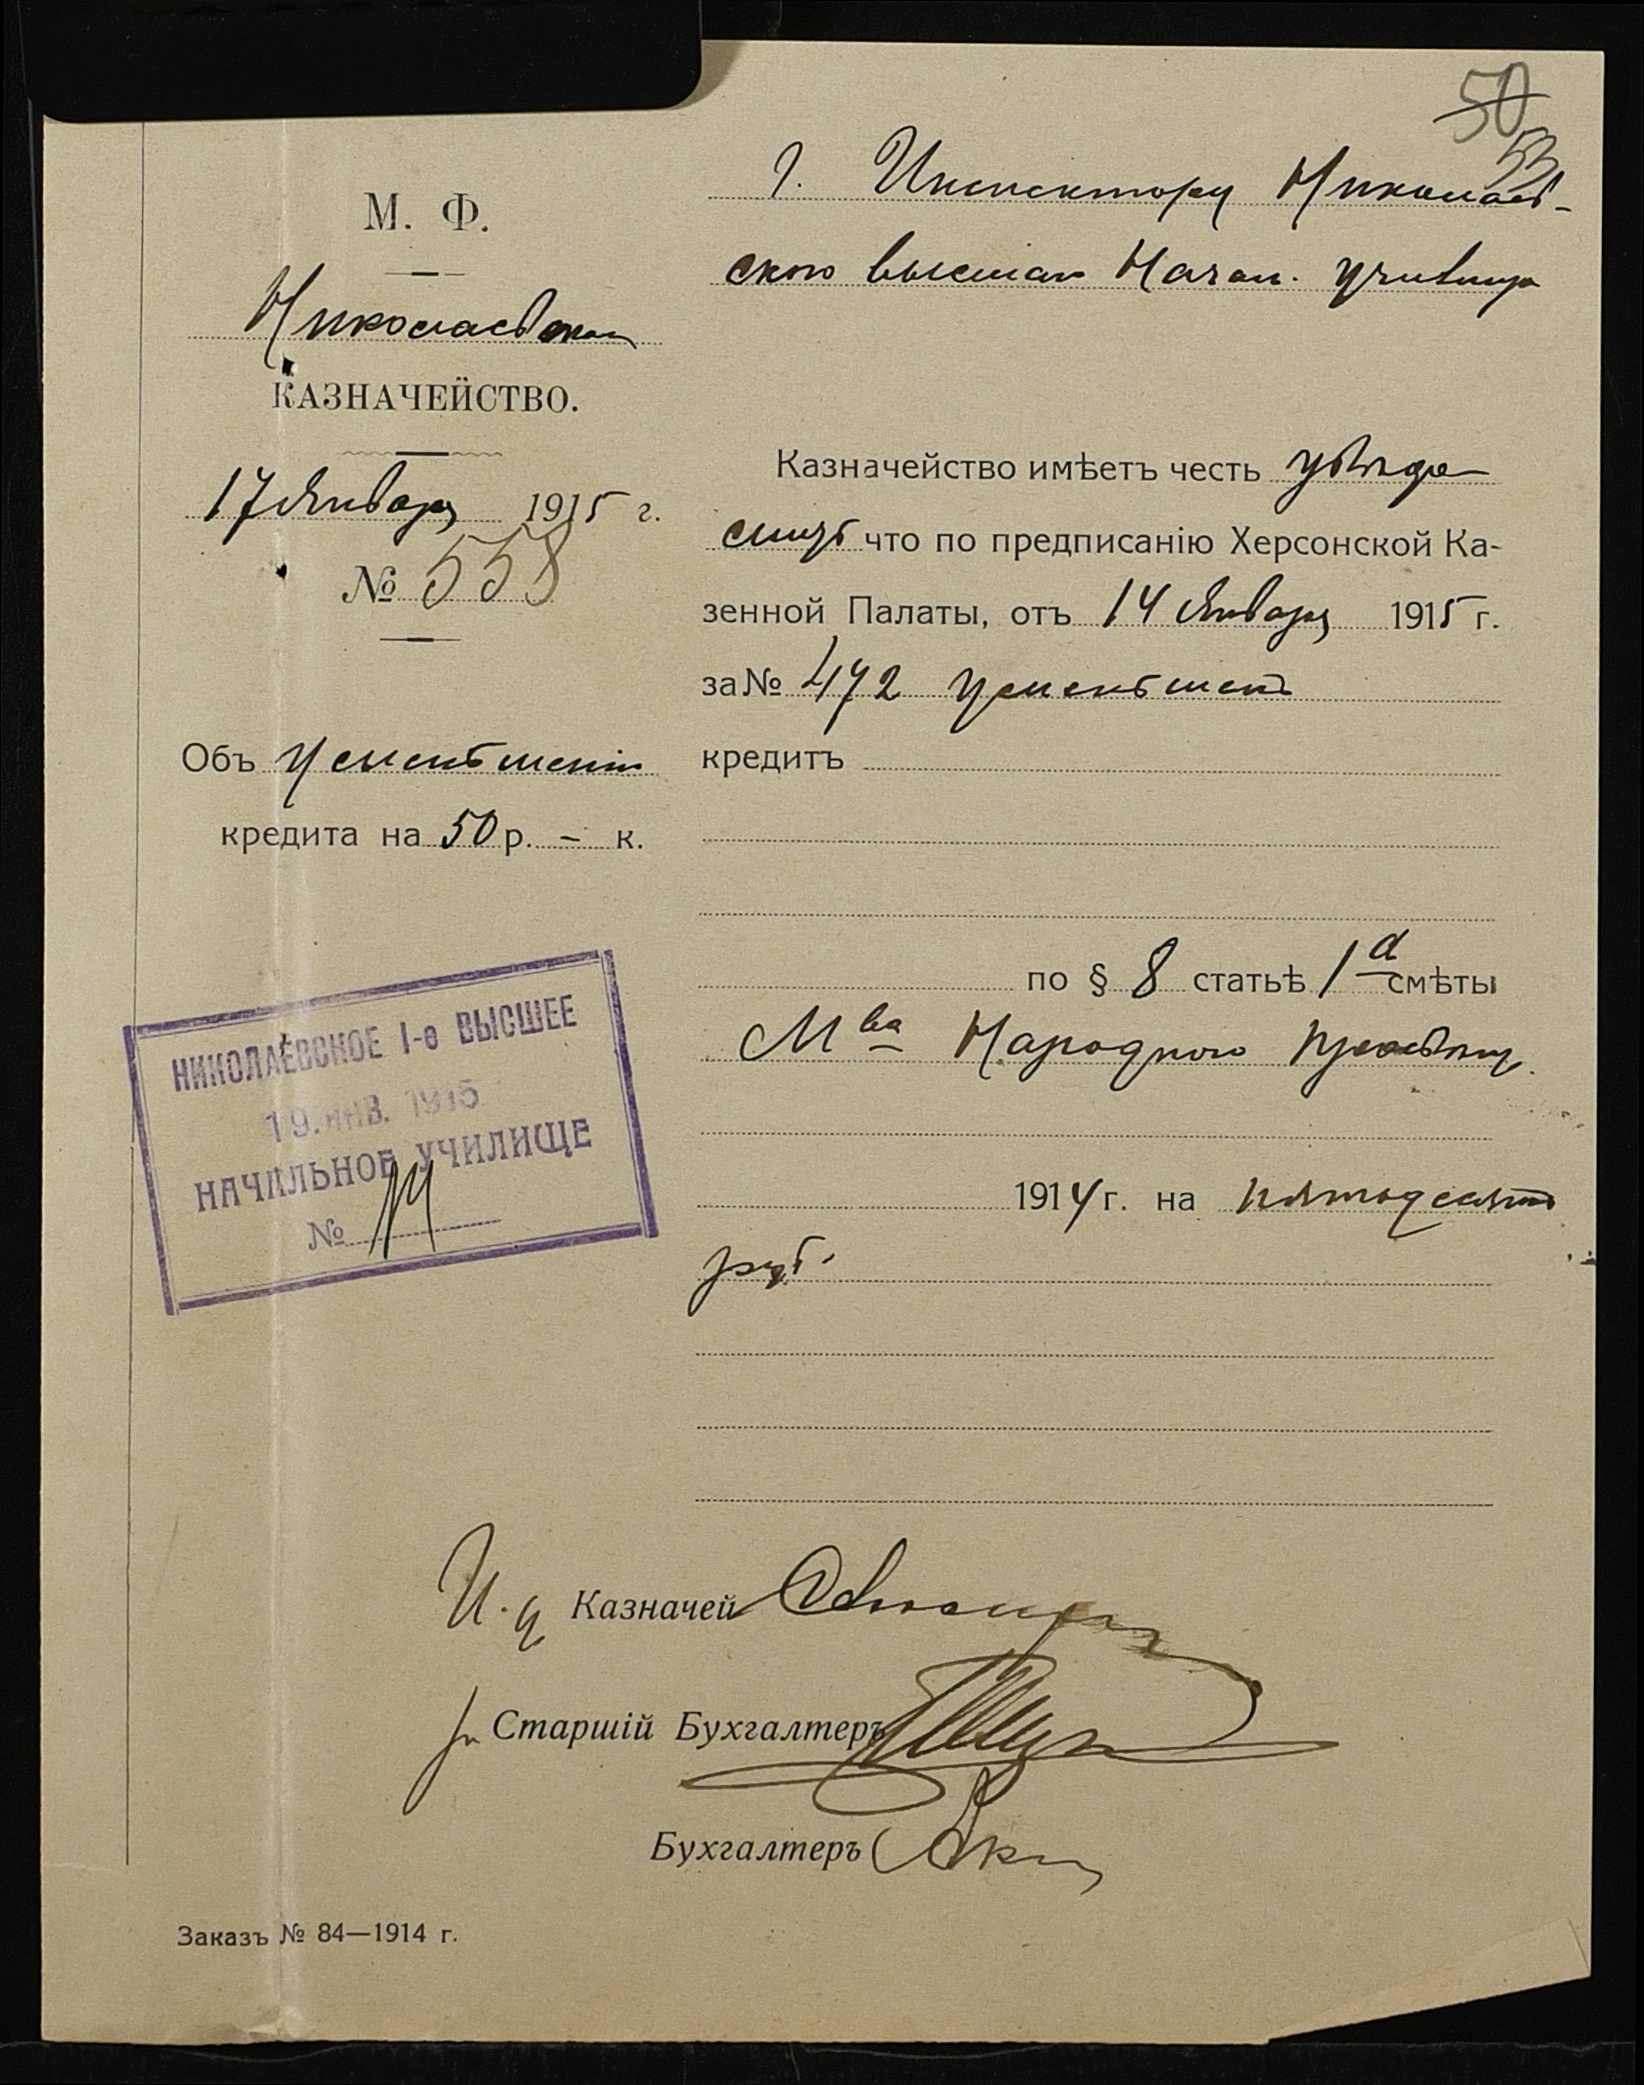 50
53
М. Ф.
Николаевское
КАЗНАЧЕЙСТВО.
17 Января 1915 г.
№ 558
Объ уменьшеніи
кредита на 50 р. - к.
НИКОЛАЕВСКОЕ 1-е ВЫСШЕЕ
19. ЯНВ. 1915
НАЧАЛЬНОЕ УЧИЛИЩЕ
№
Г. Инспектору Николаев-
ского высшаго Начал. училища
Казначейство имѣетъ честь увѣдо
мить что по предписанію Херсонской Ка-
зенной Палаты, отъ 14 Января 1915 г.
за № 472 уменьшенъ
кредитъ
по § 8 статьѣ 1 а смѣты
Мва Народного просвѣщ.
1914 г. на пятьдесятъ
руб.
И. д. Казначей
Старшій Бухгалтеръ
Бухгалтеръ
Заказъ № 84—1914 г.